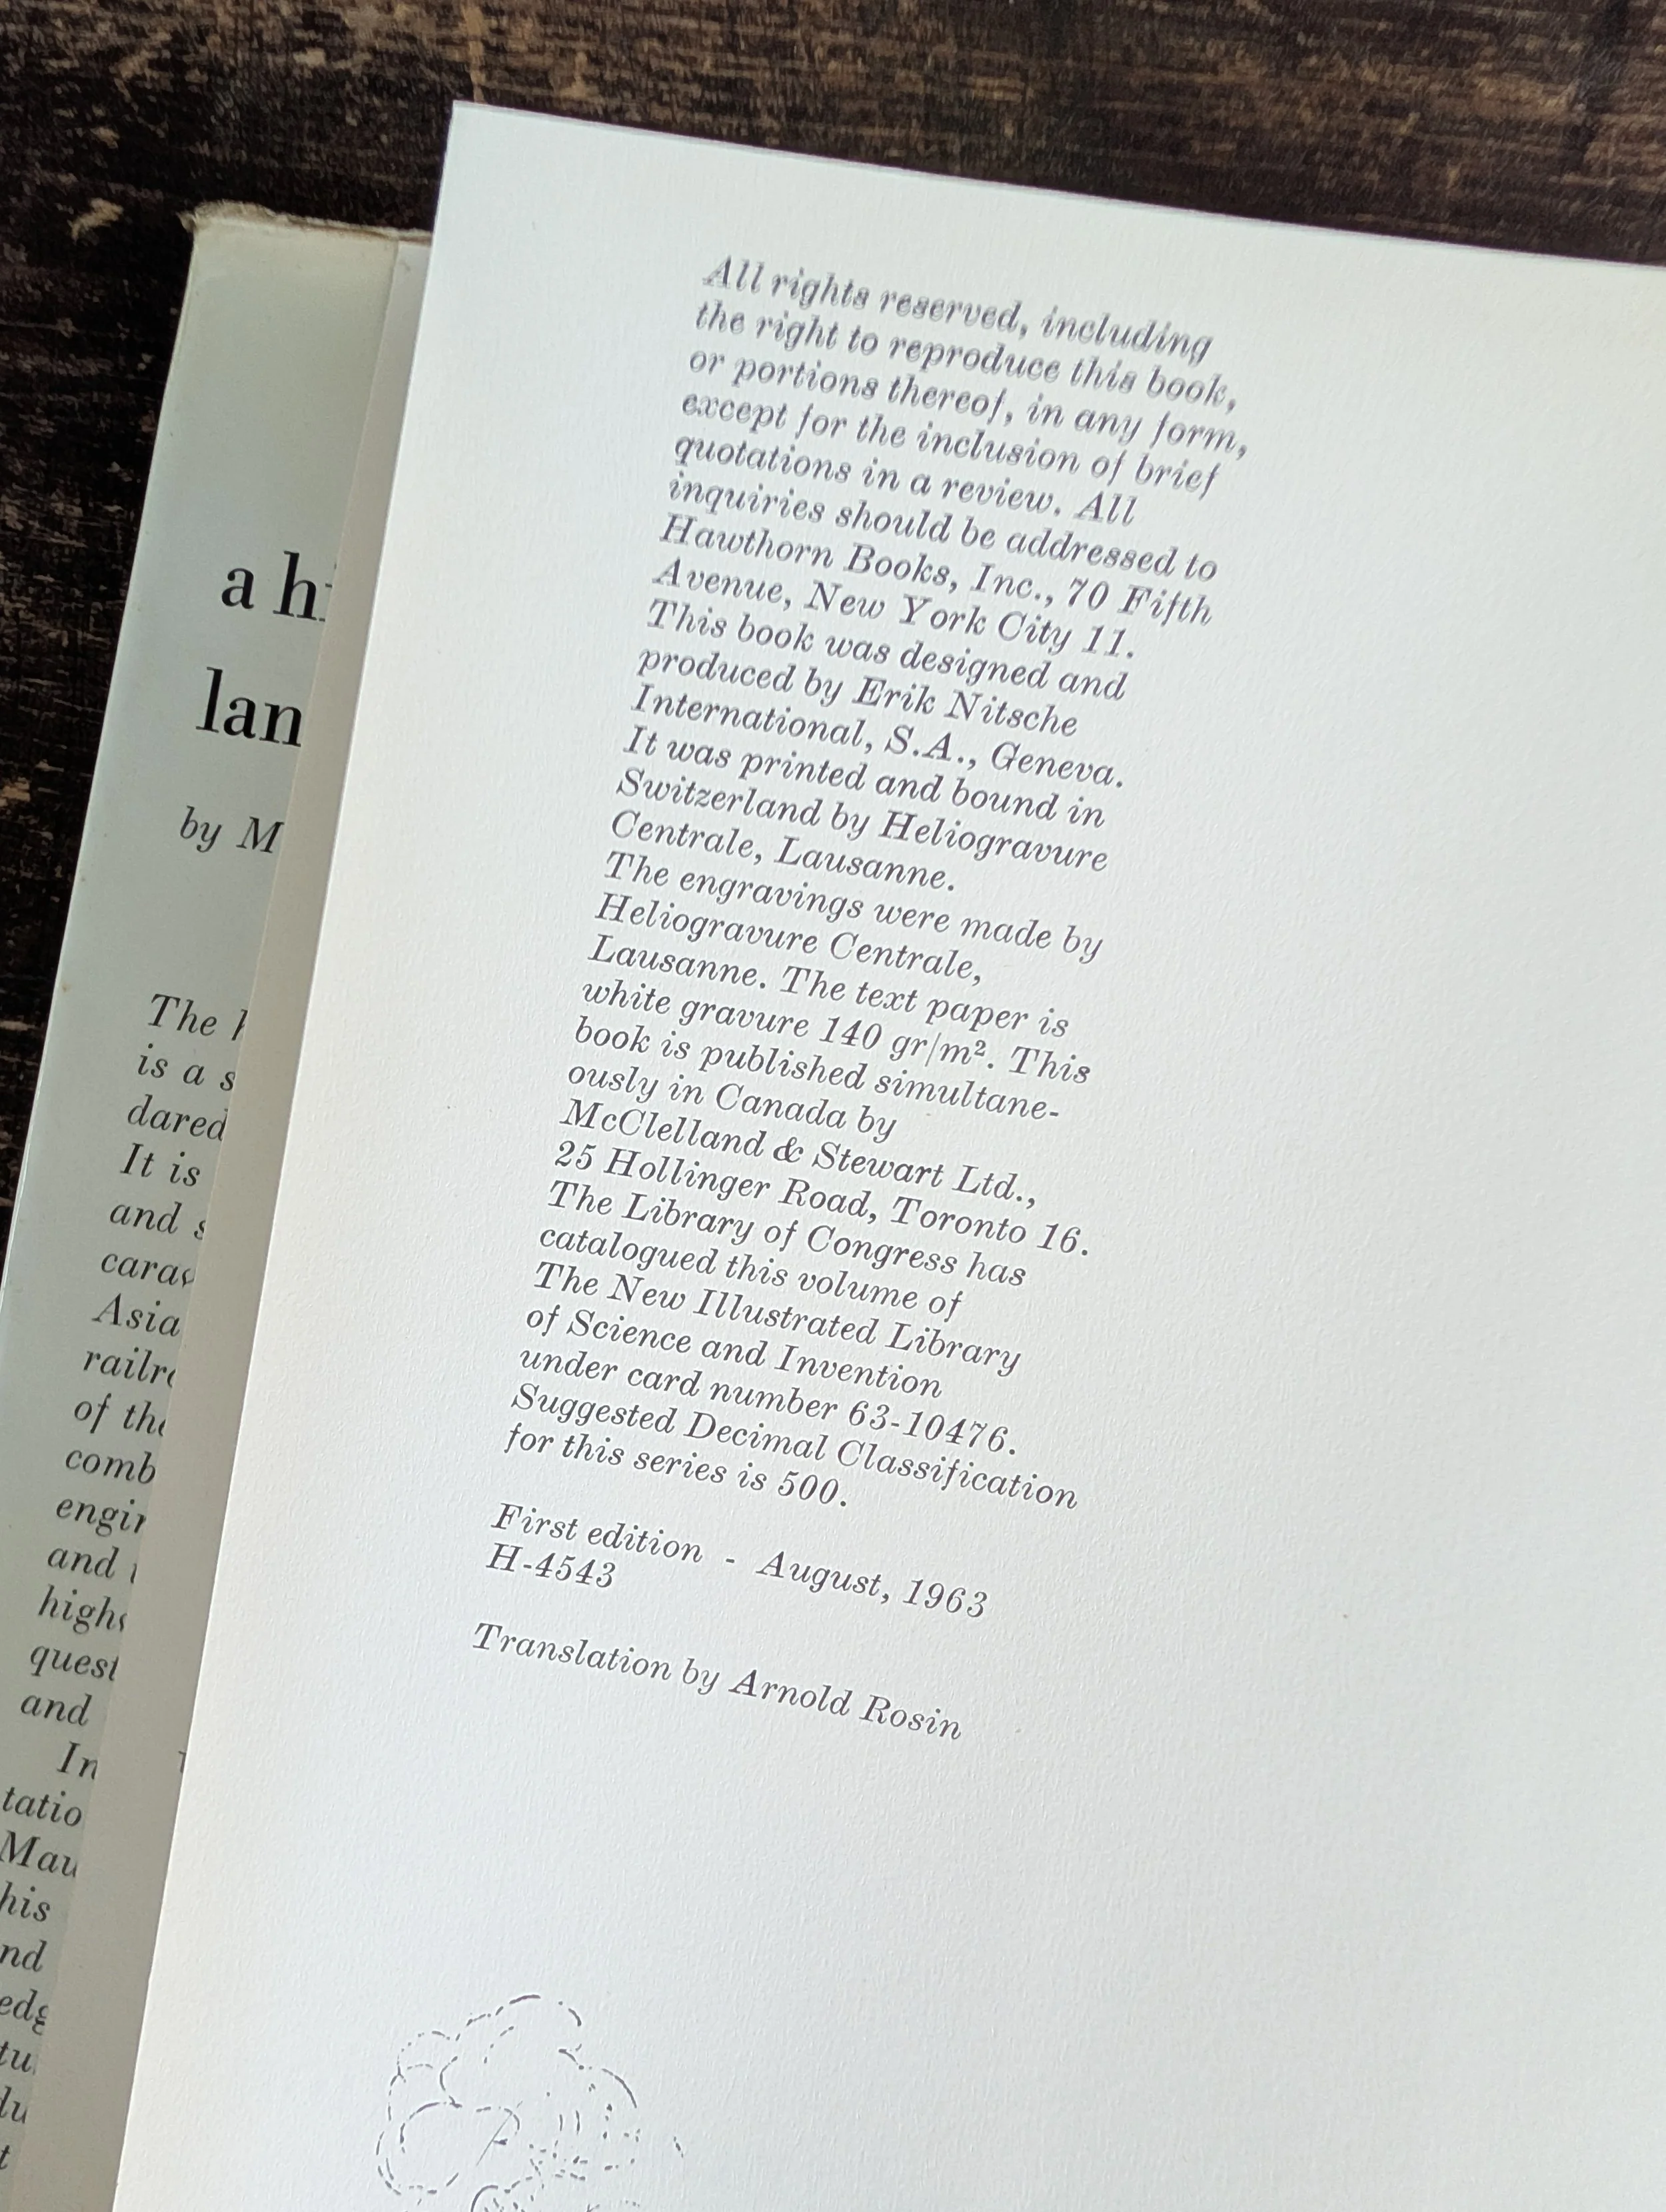 a
lan
by M
The
is a
dared
It is
and
Asia
of
comb
and
and
In
his
All rights reserved, including
the right to reproduce this book,
or portions thereof, in any form,
except for the inclusion of brief
quotations in a review. All
inquiries should be addressed to
Hawthorn Books, Inc., 70 Fifth
Avenue, New York City 11.
This book was designed and
produced by Erik Nitsche
International, S.A., Geneva.
It was printed and bound in
Switzerland by Heliogravure
Centrale, Lausanne.
The engravings were made by
Heliogravure Centrale,
Lausanne. The text paper is
white gravure 140 gr/m². This
book is published simultane-
ously in Canada by
McClelland & Stewart Ltd.,
25 Hollinger Road, Toronto 16.
The Library of Congress has
catalogued this volume of
The New Illustrated Library
of Science and Invention
under card number 63-10476.
Suggested Decimal Classification
for this series is 500.
First edition - August, 1963
H-4543
Translation by Arnold Rosin